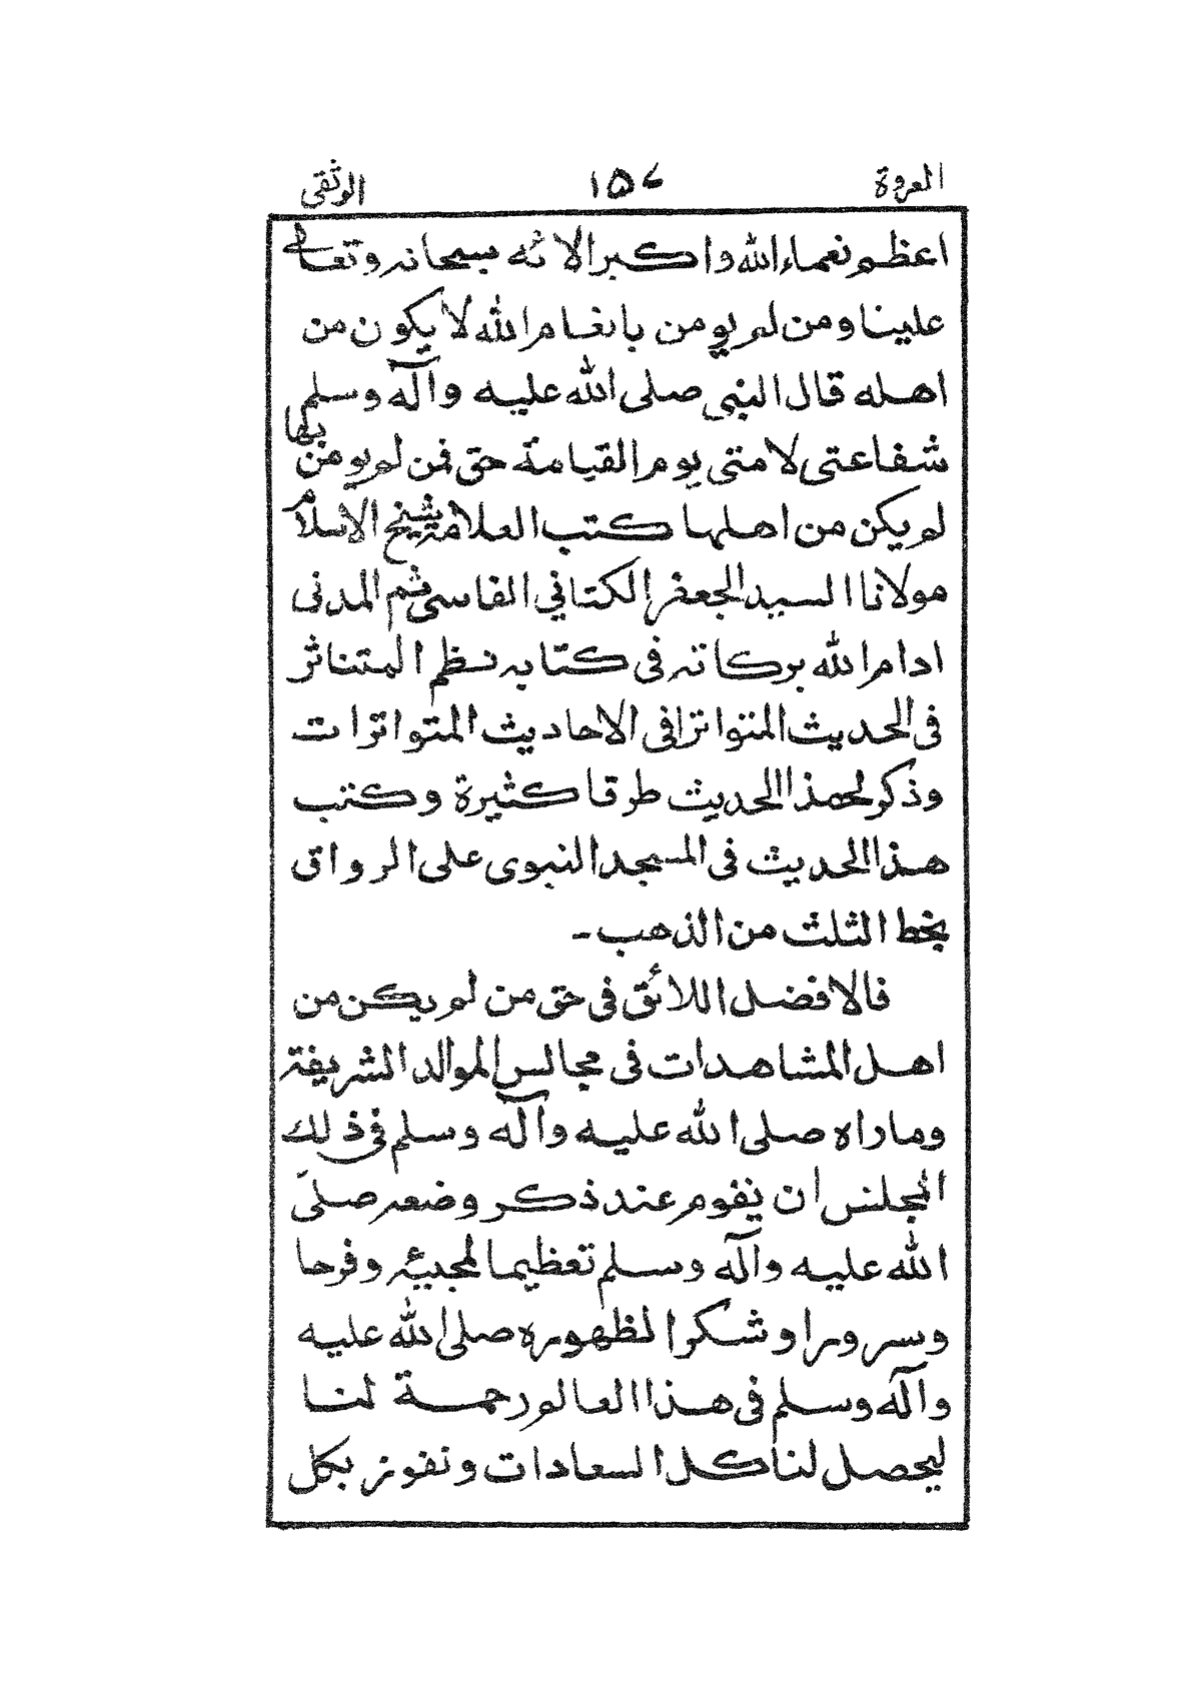 العروة ۱۵۷ الوثقى
اعظم نعماء الله واكبر الائه سبحانه وتعالى
علينا ومن لم يومن بانعام الله لا يكون من
اهله قال النبي صلى الله عليه وآله وسلم
شفاعتى لامتى يوم القيامة حق فمن لم يومن بها
لم يكن من اهلها كتب العلامة شيخ الاسلام
مولانا السيد الجعفر الكتافي الفاسى ثم المدنى
ادام الله بركاته فى كتابه نظم المتناثر
فى الحديث المتواتر افى الاحاديث المتواترات
وذكر لهذا الحديث طرقا كثيرة وكتب
هذا الحديث فى المسجد النبوى على الرواق
بخط الثلث من الذهب ـ
فالافضل اللائق فى حق من لم يكن من
اهل المشاهدات فى مجالس الموالد الشريفة
وماراه صلى الله عليه وآله وسلم فى ذلك
المجلس ان يقوم عند ذكر وضعه صلى
الله عليه وآله وسلم تعظيما لمجيئه وفرحا
وسرورا وشكرا لظهوره صلى الله عليه
وآله وسلم فى هذا العالم رحمة لنا
ليحصل لنا كل السعادات ونفوز بكل